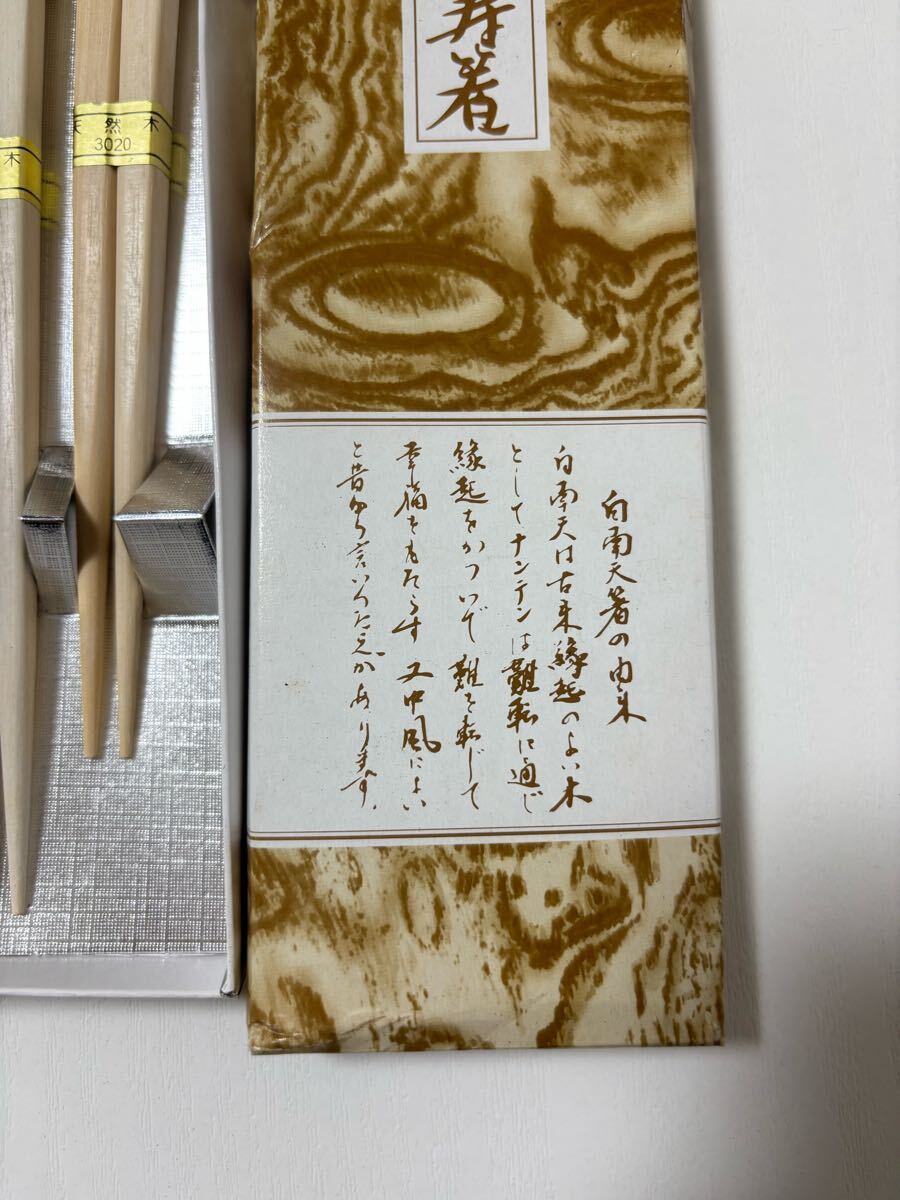 寿箸
白南天箸の由来
白南天は古来縁起のよい木
としてナンテンは難転に通じ
縁起をかついで 難を転じて
幸福をもたらす 又中風によい
と昔から言いつたえがあります。
天然木
3020
木